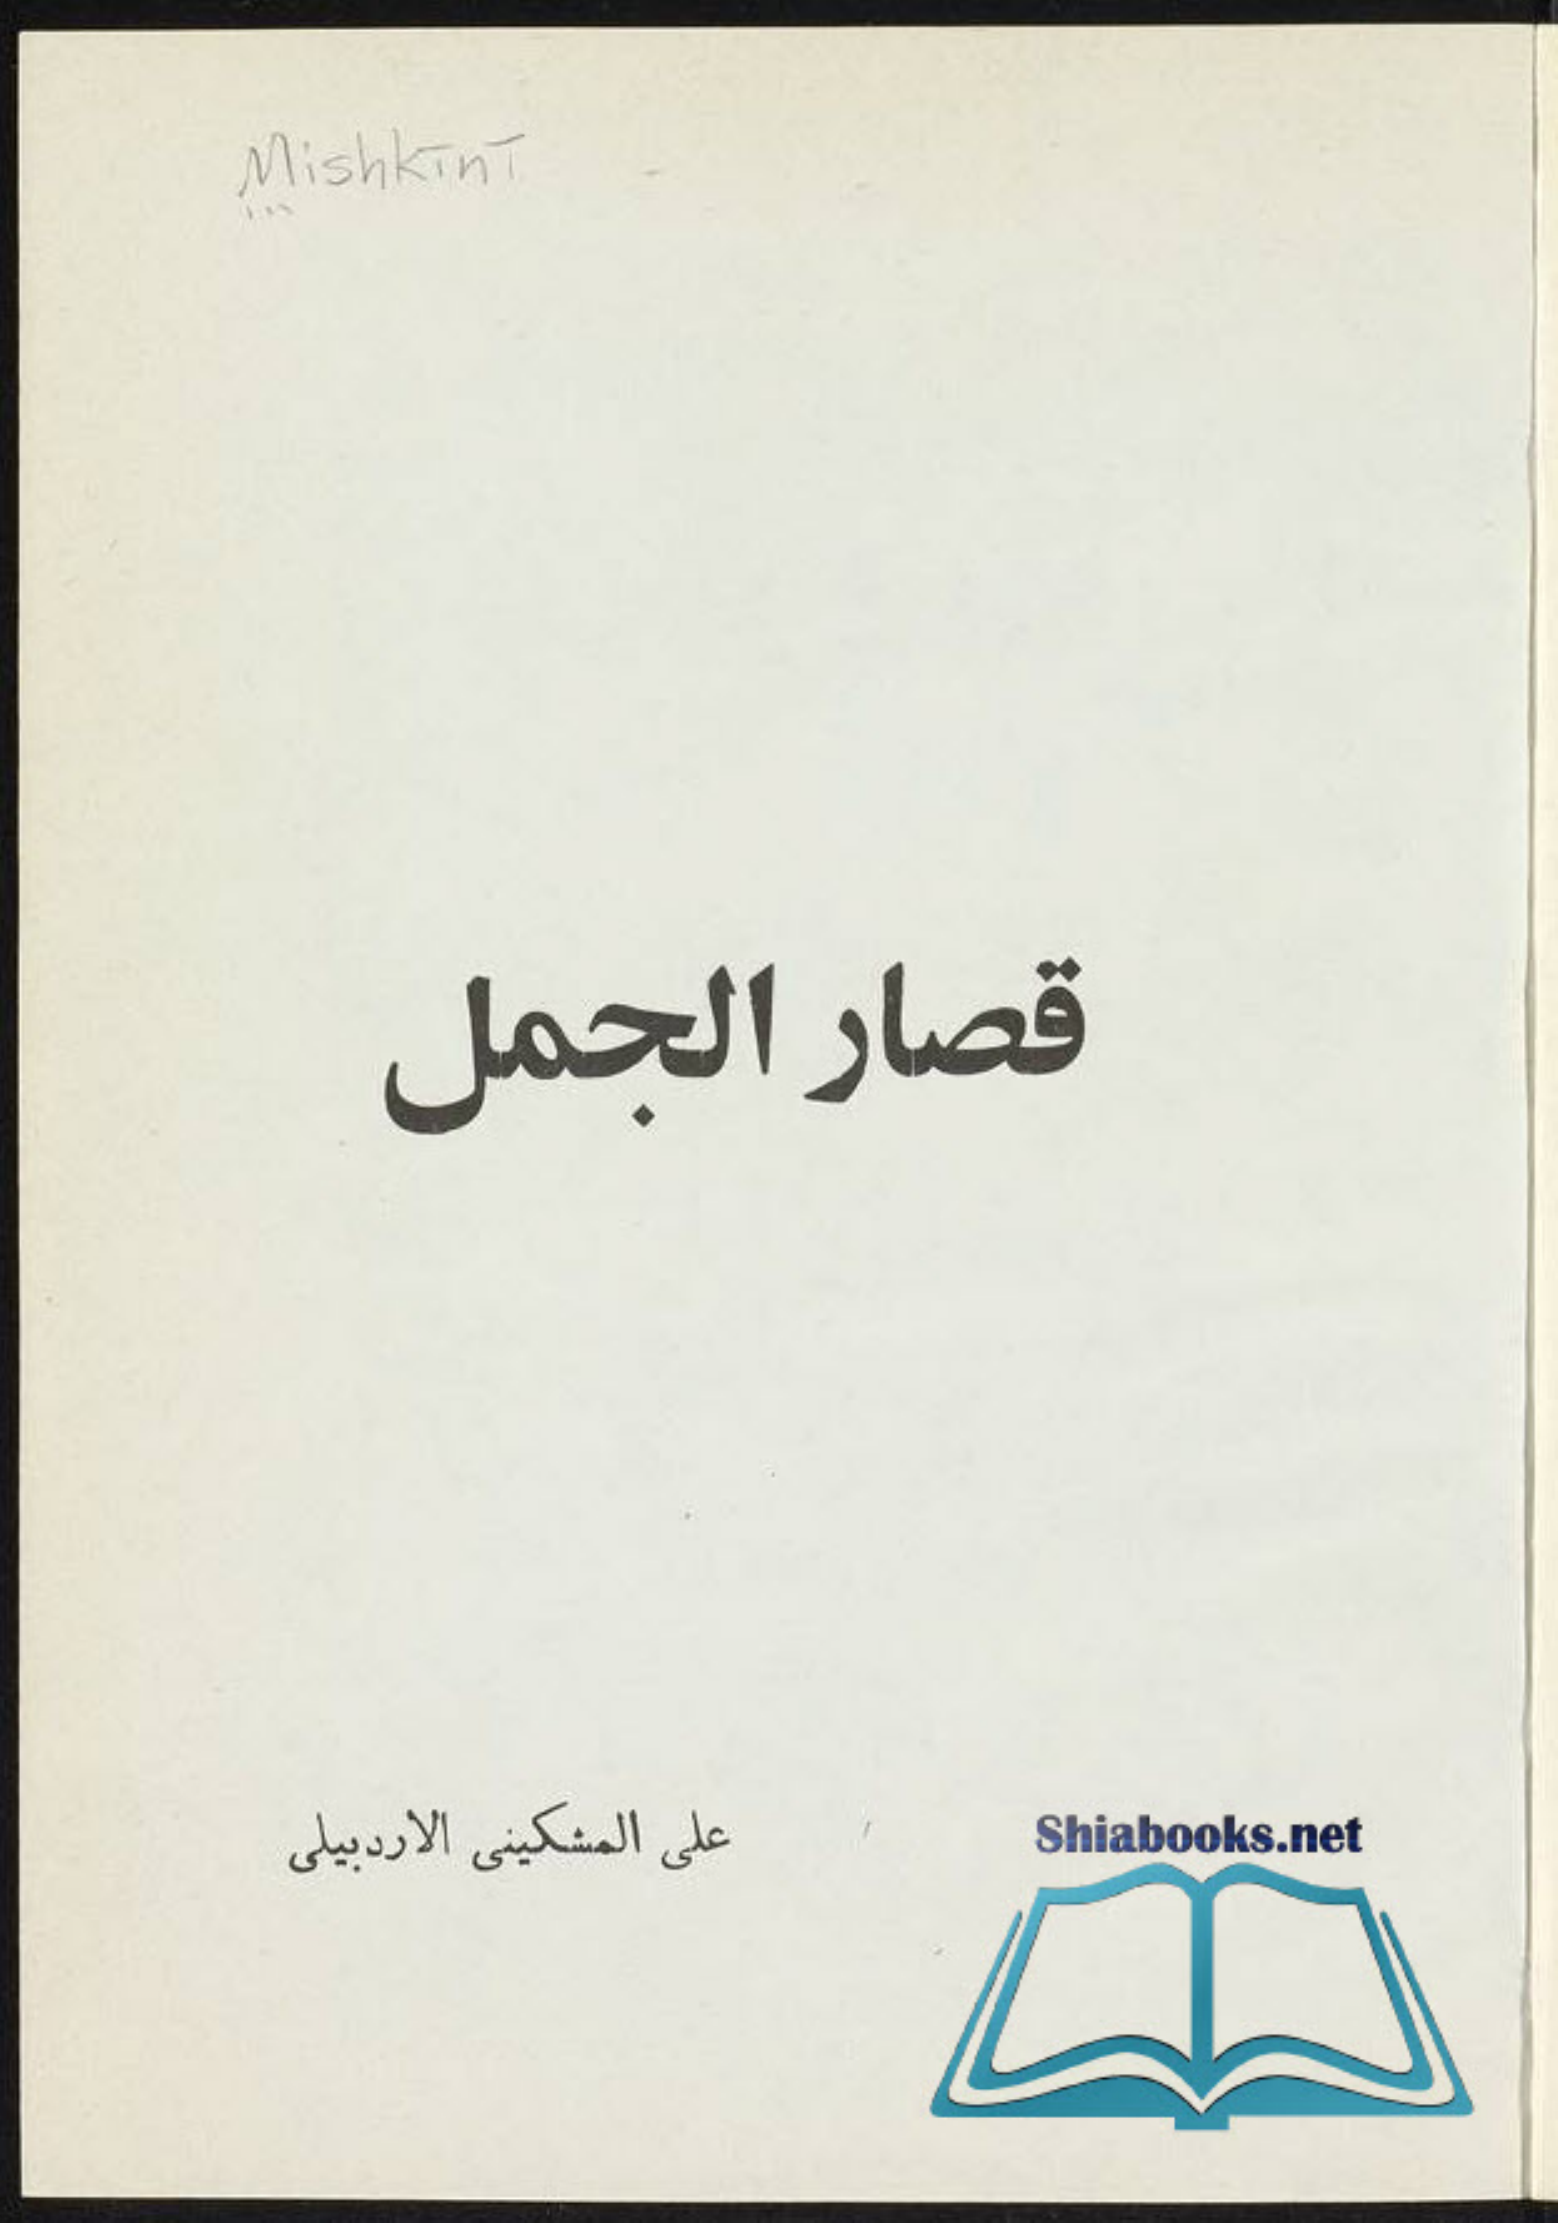 Mishkīnī
قصار الجمل
على المشكينى الاردبيلى
Shiabooks.net